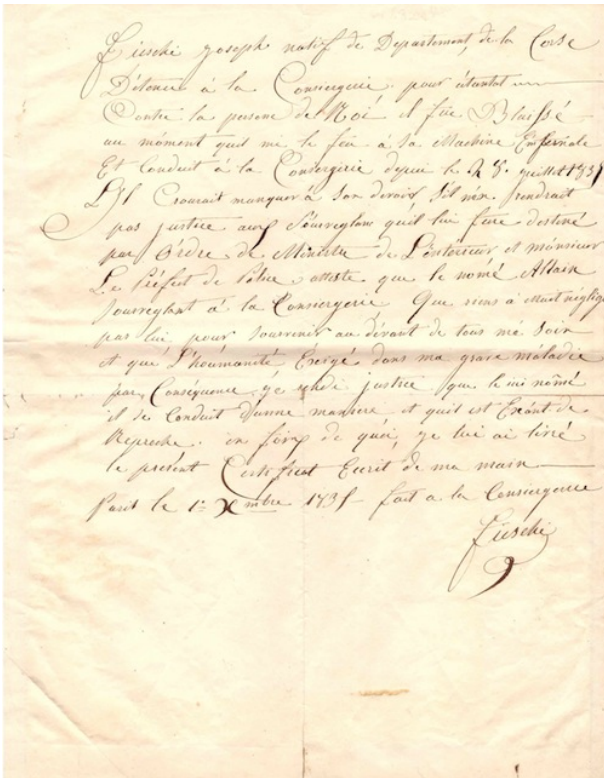 Fieschi Joseph natif de Departement, de la Corse
Détenue à la Consiergerie pour atantat
Contre la personne de Roi il fut Blaissé
au moment quil me le feu à sa Machine Enfernale
Et Conduit à la Consiergerie depui le 28. juillet 1835
Il Crourait manquer à son devoir s'il n'en rendrait
pas justice aux Sourveglans qu'il lui fure destiné
par Ordre de Ministre de L'intérieur et monsieur
Le Préfet de Police atteste que le nomé Allain
Sourveglant à la Consiergerie Que riens à
pas lui pour souvenir au dévant de tous mé soin
et que L'houmanité Éxigé dans ma grave máladie
par Conséquence je rendé justice que le nômé
il se Conduit d'unne maniere et quil est Exént de
Reproche. en foix de quoi, je lui ai livré
le présent Certificat Ecrit de ma main
Paris le 1er Xmbre 1835 fait a la Consiergerie
Fieschi